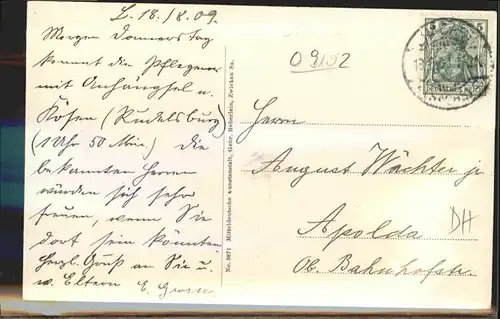 L. 18./8.09.
Morgen Donnerstag
kommt die
mit Anhängsel n.
Kösen (Rudelsburg)
(1 Uhr 50 Min.) Die
bekannten Herren
würden sich sehr
freuen, wenn Sie
dort sein könnten
Herzl. Gruß an Sie u.
w. Eltern E. Grosse
No. 3871 Mitteldeutsche Kunstanstalt, Gebr. Heberlein, Zwickau Sa.
09102
Herrn
August Wächter jr
Apolda
Ob. Bahnhofstr.
DH